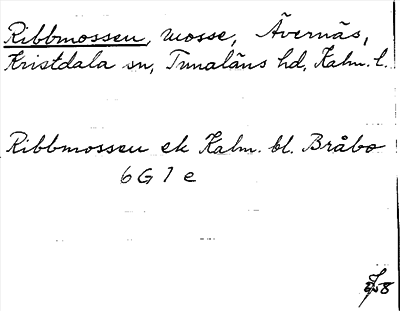 Ribbmossen, mosse, Ävernäs,
Kristdala sn, Tunaläns hd, Kalm. l.
Ribbmossen ek Kalm. bl. Bråbo
6 G 1 e